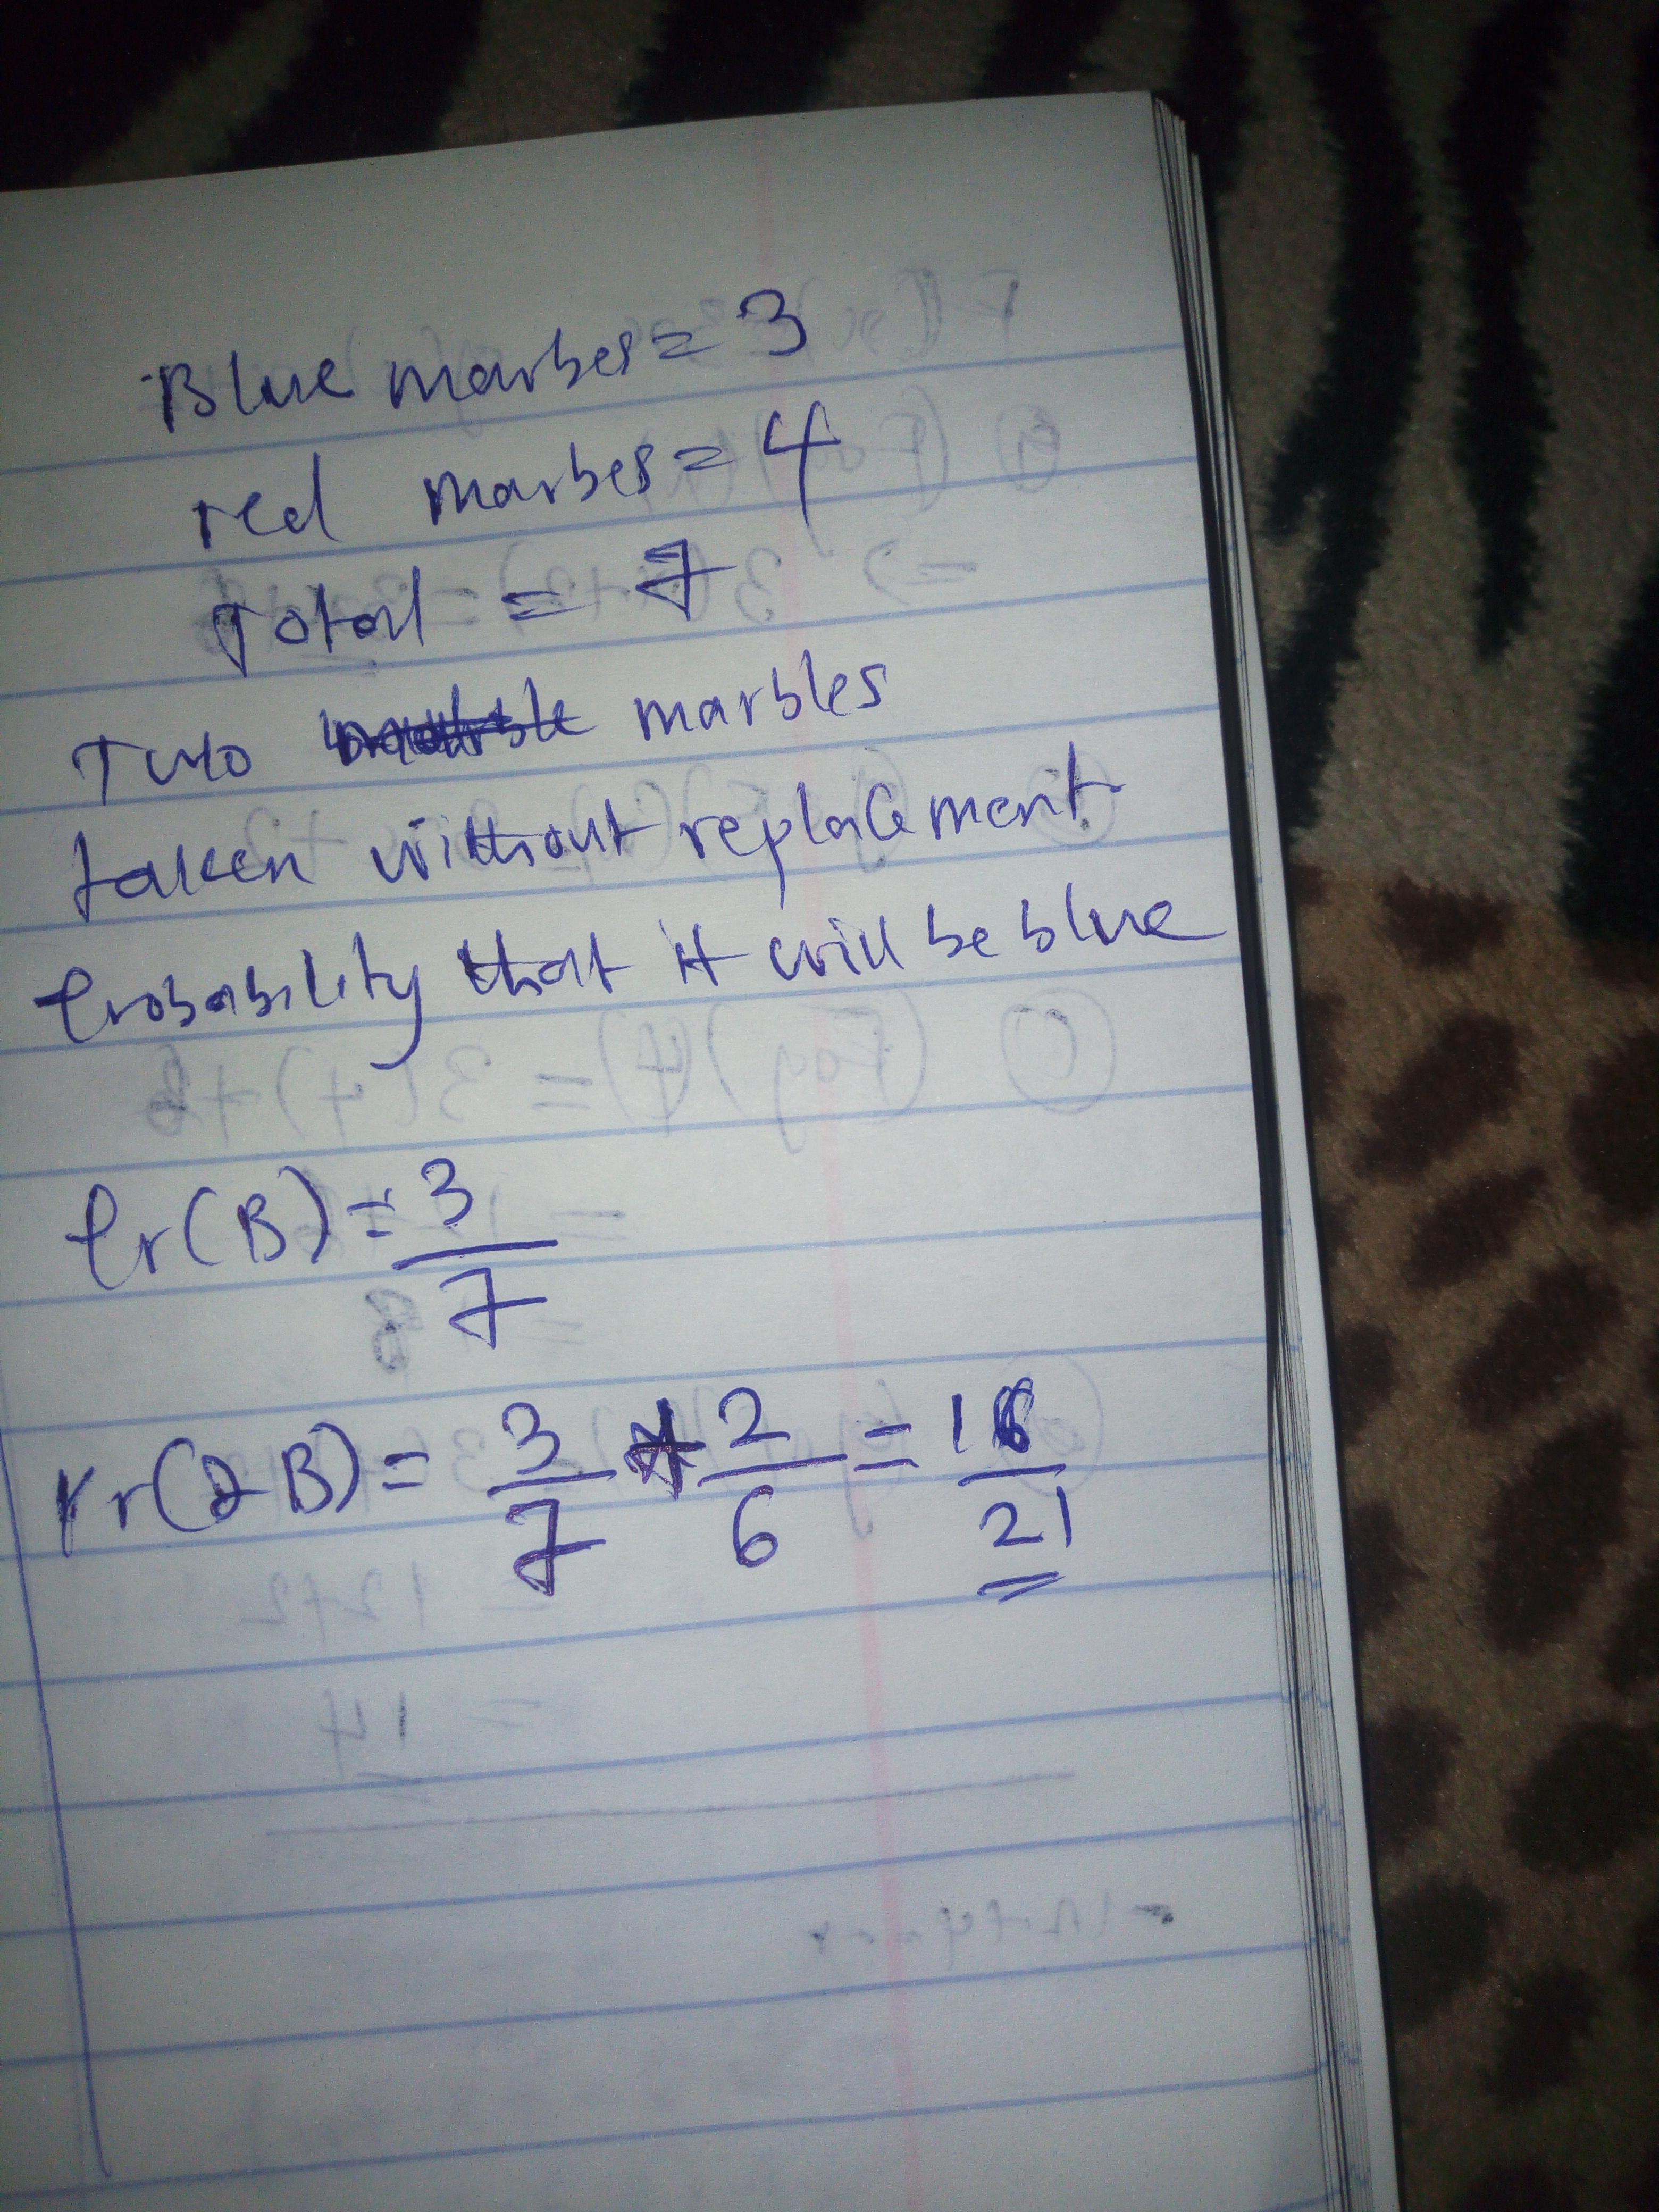 Blue marbes = 3
red marbes = 4
Total = 7
Two marbles
taken without replacement
Probability that it will be blue
Pr(B) = 3/7
Pr(2B) = 3/7 + 2/6 = 16/21